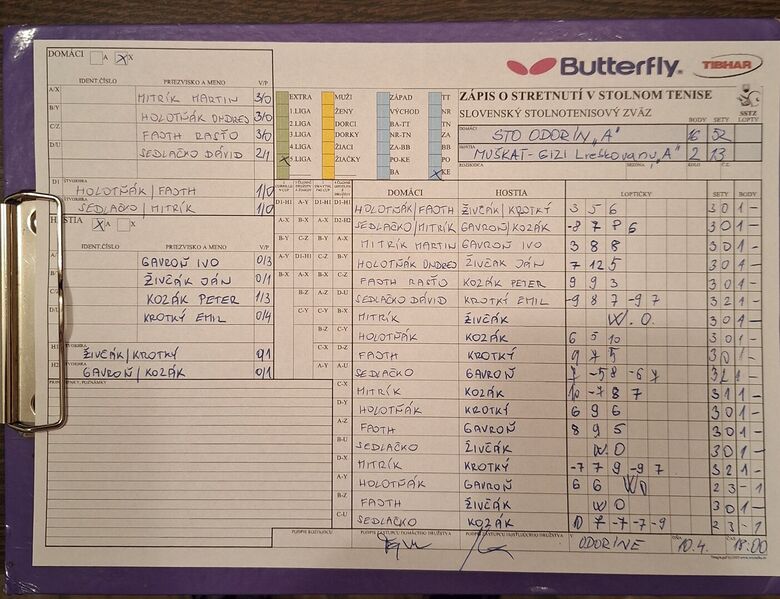 DOMÁCI A X
IDENT.ČÍSLO PRIEZVISKO A MENO V/P
A/X MITRÍK MARTIN 3/0
B/Y HOLOTŇÁK ONDREJ 3/0
C/Z FAJTH RASŤO 3/0
D/U SEDLAČKO DÁVID 2/1
D1 ŠTVORHRA HOLOTŇÁK/FAJTH 1/0
SEDLAČKO/MITRÍK 1/0
HOSTIA X A X
IDENT.ČÍSLO PRIEZVISKO A MENO V/P
GAVROŇ IVO 0/3
ŽIVČÁK JÁN 0/1
KOZÁK PETER 1/3
KROTKÝ EMIL 0/4
H1 ŠTVORHRA ŽIVČÁK/KROTKÝ 0/1
H2 ŠTVORHRA GAVROŇ/KOZÁK 0/1
POZNÁMKY
Butterfly
TIBHAR
EXTRA MUŽI ZÁPAD TT
1.LIGA ŽENY VÝCHOD NR
2.LIGA DORCI BA-TT TN
3.LIGA DORKY NR-TN ZA
4.LIGA ŽIACI ZA-BB BB
X 5.LIGA ŽIAČKY PO-KE PO
BA X KE
ZÁPIS O STRETNUTÍ V STOLNOM TENISE
SLOVENSKÝ STOLNOTENISOVÝ ZVÄZ
SSTZ
BODY SETY LOPTY
DOMÁCI STO ODORÍN „A" 16 52
HOSTIA MUŠKAT-GIZI Lieskovany „A" 2 13
DOMÁCI HOSTIA LOPTIČKY SETY BODY
D1-H1 A-Y D1-H1 D1-H1 HOLOTŇÁK/FAJTH ŽIVČÁK/KROTKÝ 3 5 6 3 0 1 -
A-X B-X D2-H2 D2-H2 SEDLAČKO/MITRÍK GAVROŇ/KOZÁK -8 7 8 6 3 0 1 -
B-Y C-Z B-Y A-X MITRÍK MARTIN GAVROŇ IVO 3 8 8 3 0 1 -
A-Y D1-H1 C-Z B-Y HOLOTŇÁK ONDREJ ŽIVČÁK JÁN 7 12 5 3 0 1 -
B-X A-X D-U C-Z FAJTH RASŤO KOZÁK PETER 9 9 3 3 0 1 -
B-Z A-Z D-U SEDLAČKO DÁVID KROTKÝ EMIL -9 8 7 -9 7 3 2 1 -
C-Y B-X A-Y MITRÍK ŽIVČÁK W.O. 3 0 1 -
C-Y B-Z HOLOTŇÁK KOZÁK 6 5 10 3 0 1 -
C-X D-Z FAJTH KROTKÝ 9 7 5 3 0 1 -
A-Y A-U SEDLAČKO GAVROŇ 7 -5 8 -6 7 3 2 1 -
C-X MITRÍK KOZÁK 10 -7 8 7 3 1 1 -
D-Y HOLOTŇÁK KROTKÝ 6 9 6 3 0 1 -
A-Z FAJTH GAVROŇ 8 9 5 3 0 1 -
B-U SEDLAČKO ŽIVČÁK W.O 3 0 1 -
D-X MITRÍK KROTKÝ -7 7 9 -9 7 3 2 1 -
A-Y HOLOTŇÁK GAVROŇ 6 6 WO 2 3 - 1
B-Z FAJTH ŽIVČÁK WO 3 0 1 -
C-U SEDLAČKO KOZÁK 10 7 -7 -7 -9 2 3 - 1
PODPIS ROZHODCU PODPIS ZÁSTUPCU DOMÁCEHO DRUŽSTVA PODPIS ZÁSTUPCU HOSŤUJÚCEHO DRUŽSTVA V ODORÍNE DŇA 10.4. ČAS 18:00